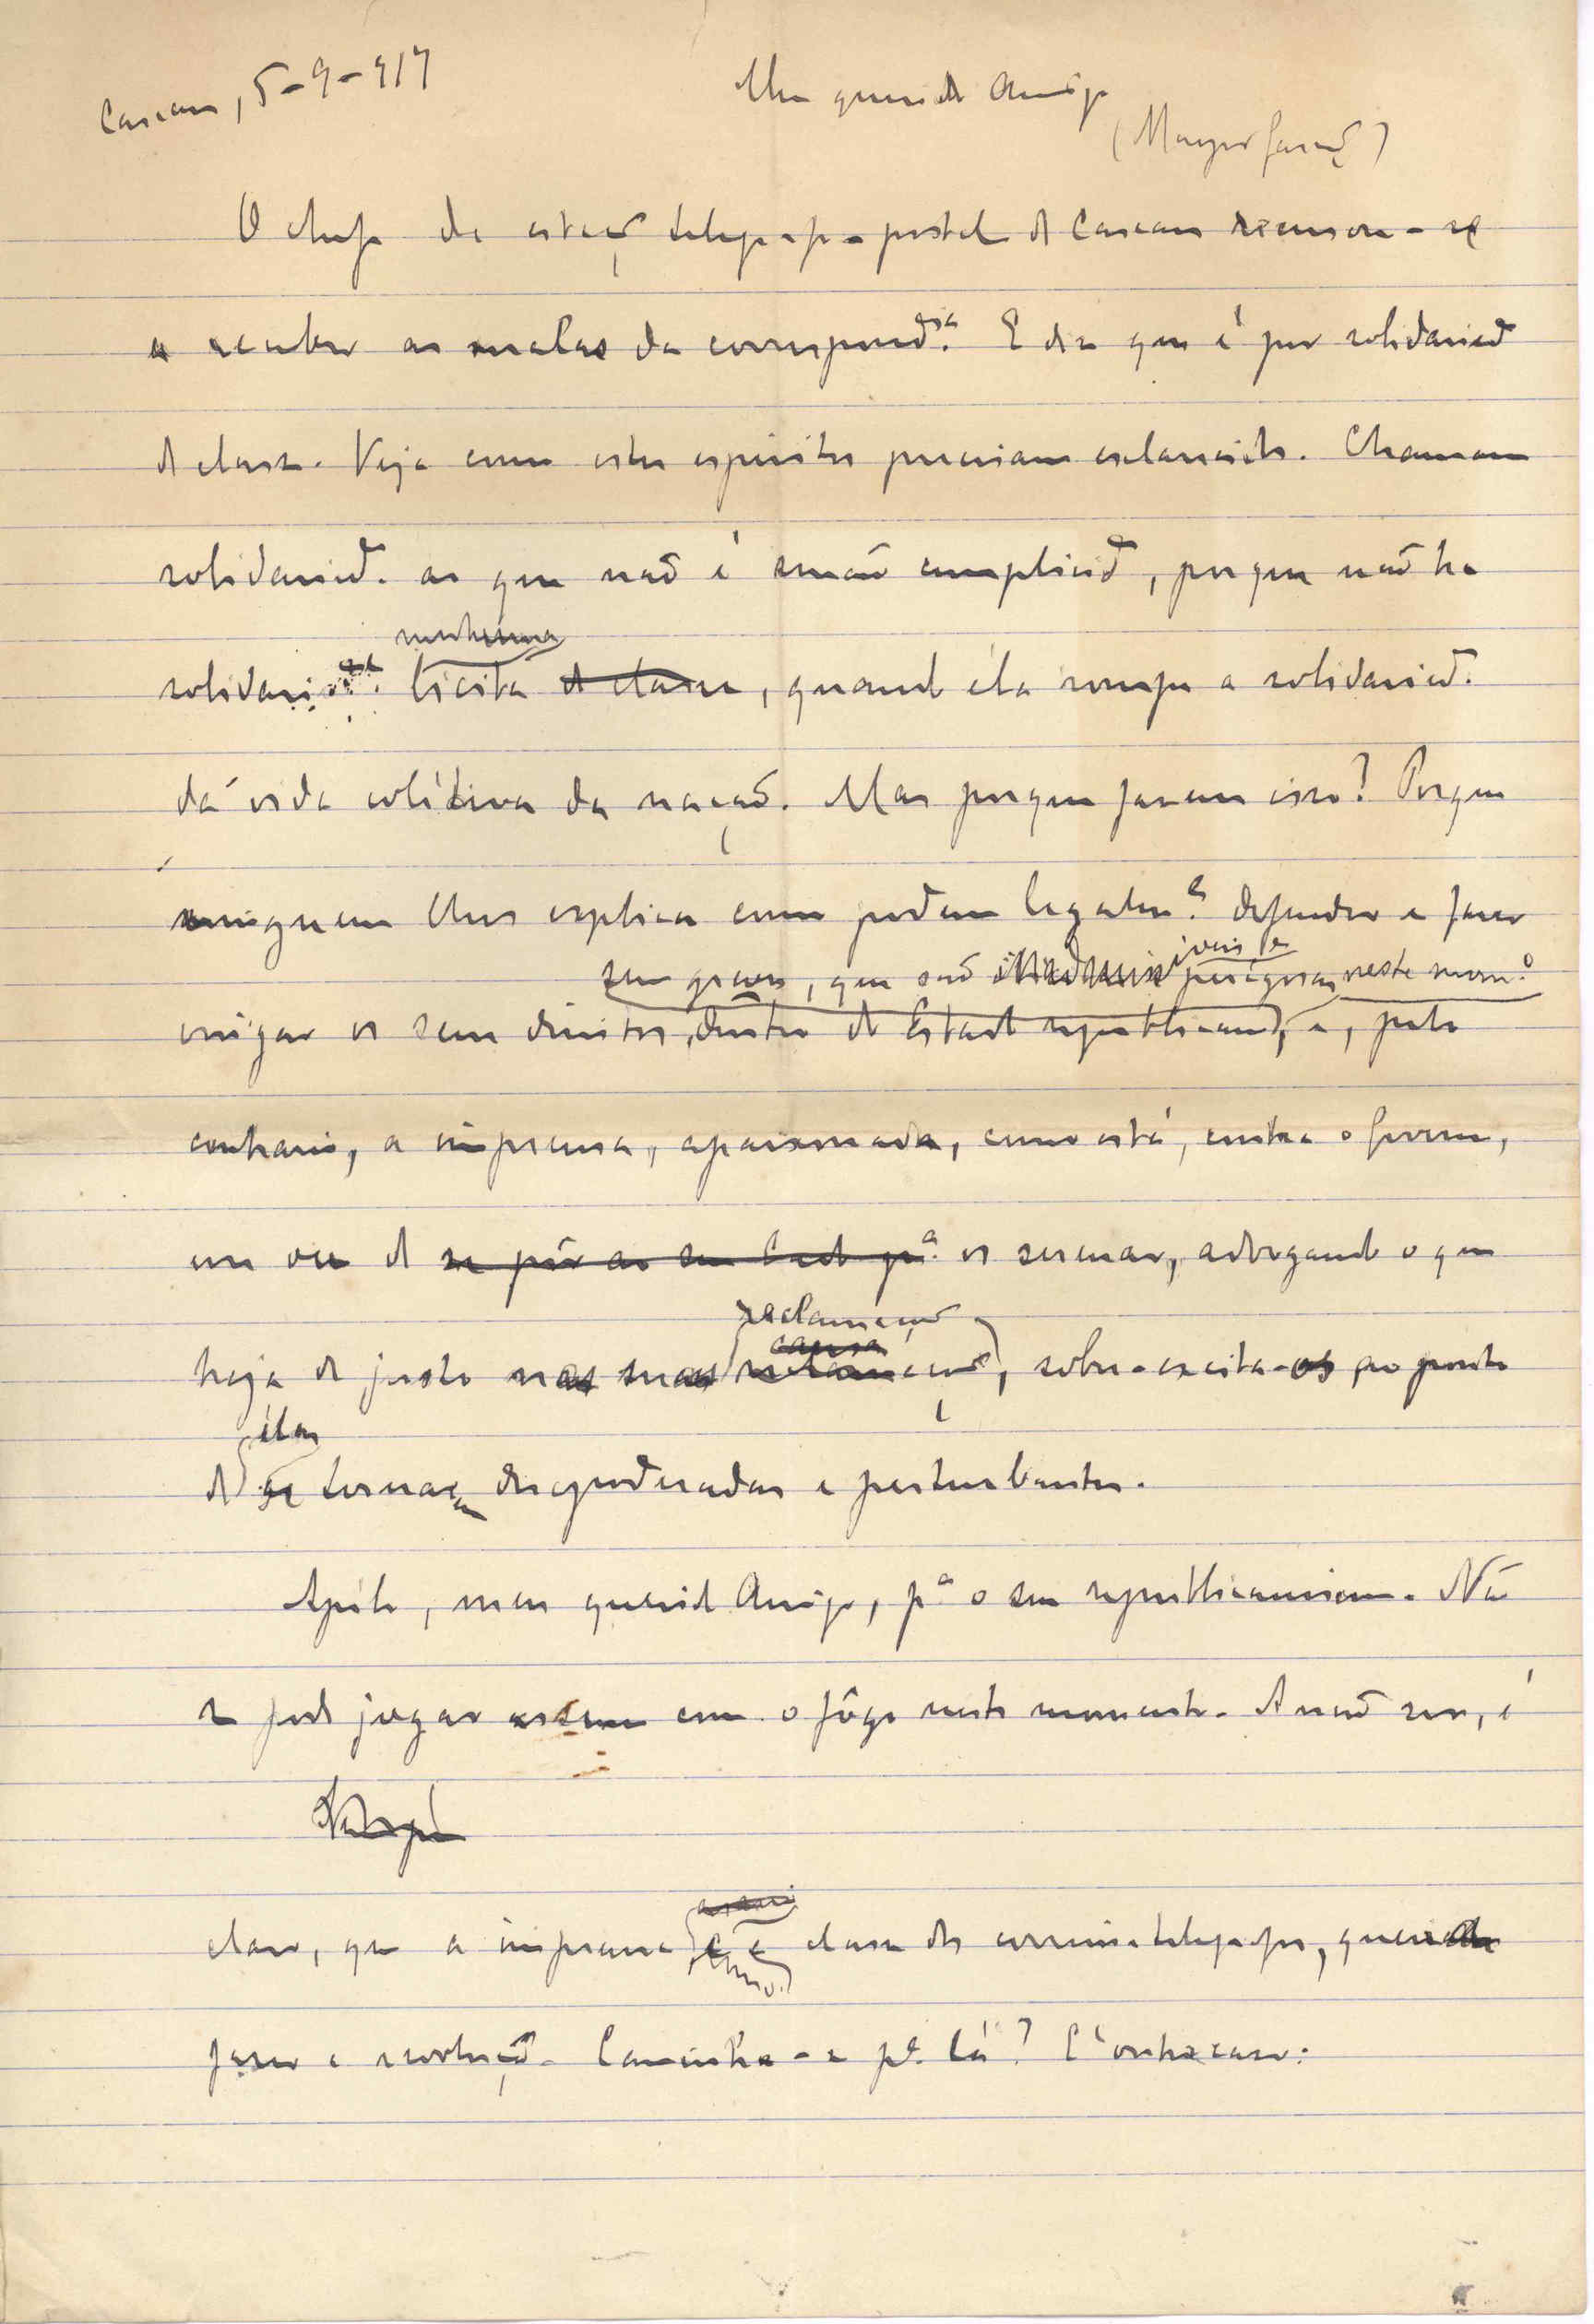 Cascaes, 5-9-917
Meu querido Amigo
(Mayer Garção)
O chefe da estação telegrapho-postal de Cascaes recusou-se
a receber as malas da correspond.ª E diz que é por solidaried.
de classe. Veja como estes espiritos precisam esclarecidos. Chamam
solidaried. ao que não é senão cumplicid., porque não ha
nenhuma
solidaried.e licita de classe, quando éla rompe a solidaried.
da vida coléctiva da nação. Mas porque fazem isso? Porque
ninguem lhes explica como podem legalm.e defender e fazer
sem gréves, que são perigosas neste mom.o
vingar os seus direitos, dentro do Estado republicano, e, pelo
contrario, a imprensa, apaixonada, como está, contra o governo,
em vez de se pôr ao seu lado p.ª os serenar, advogando o que
reclamação
causa
haja de justo nas suas reclamações, sobre-excita-os ao ponto
élas
de se tornarem desapoderadas e perturbantes.
Apélo, meu querido Amigo, p.ª o seu republicanismo. Não
se pode jogar assim com o fôgo neste momento. A não ser, é
claro, que a imprensa e a classe dos correios e telegraphos, queiram
fazer a revolução. Caminha-se p.ª lá? É outro caso.